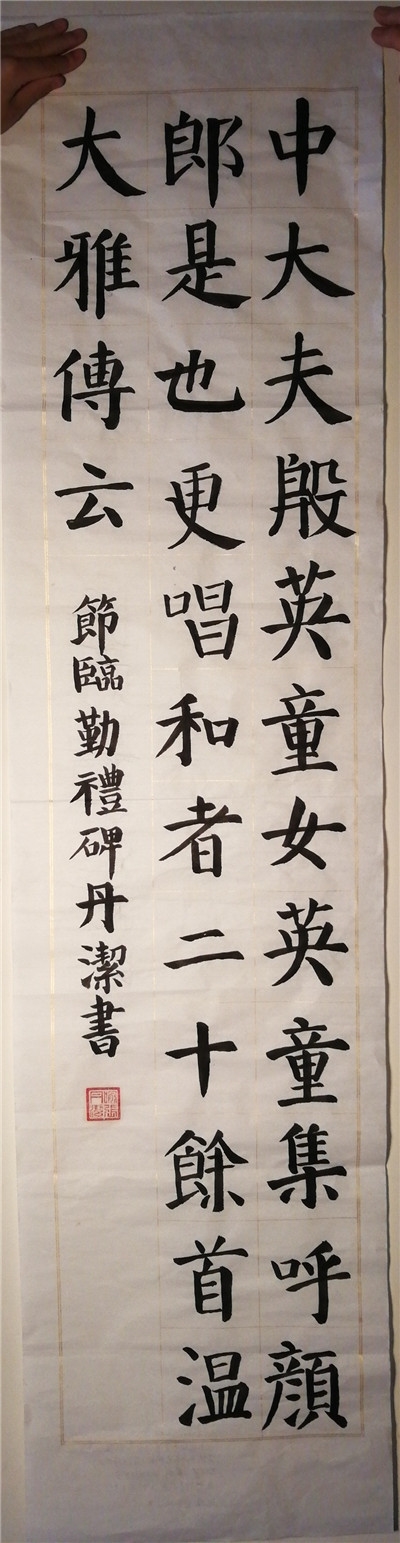 中大夫殷英童女英童集呼顔
郎是也更唱和者二十餘首温
大雅傳云
節臨勤禮碑丹潔書